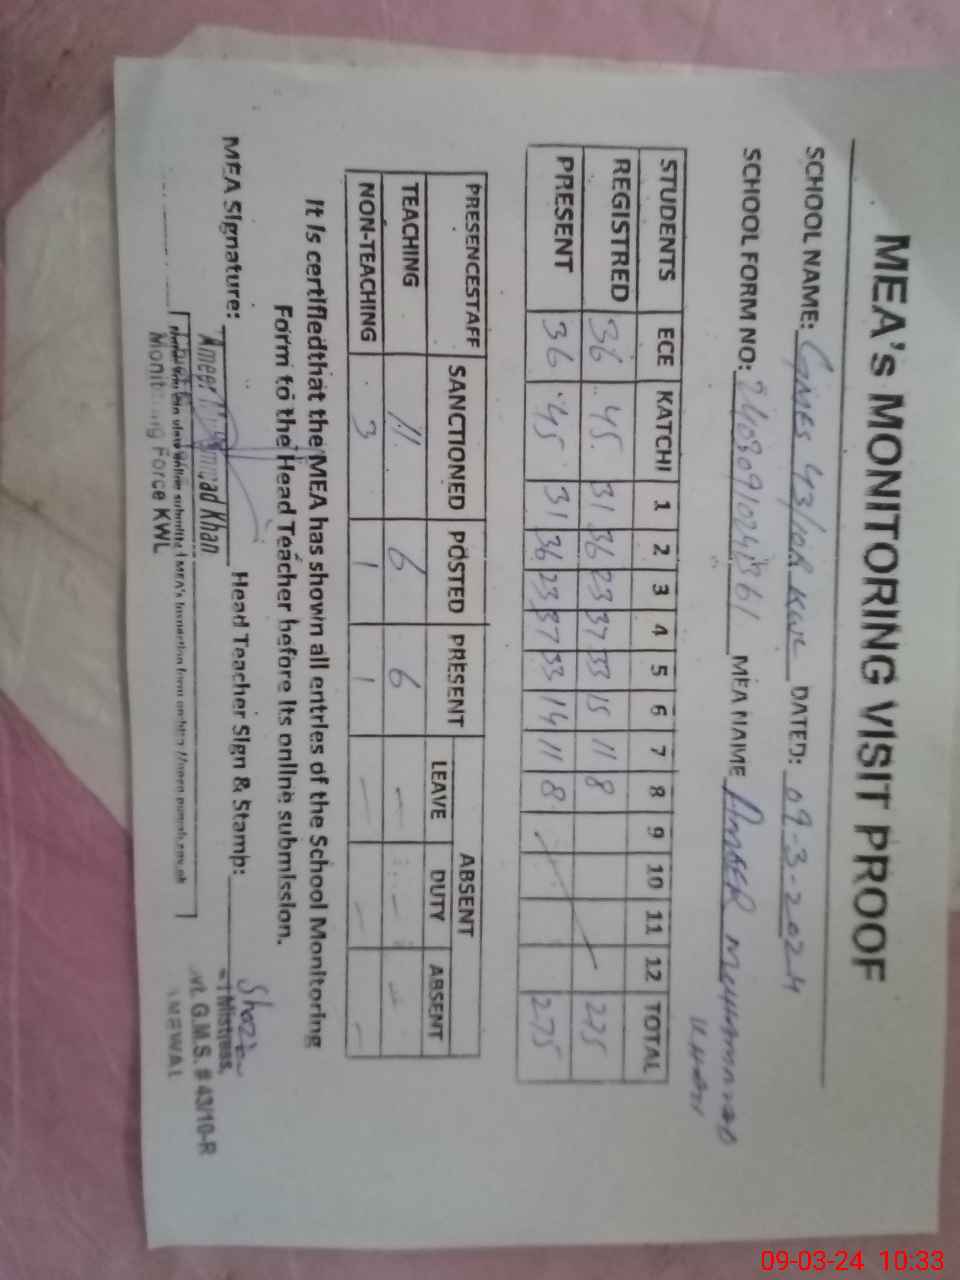 MEA's MONITORING VISIT PROOF
SCHOOL NAME: GMES 43/10R KWL DATED: 09-3-2024
SCHOOL FORM NO: MEA NAME AMEER MUHAMMAD
KHAN
STUDENTS ECE KATCHI 1 2 3 4 5 6 7 8 9 10 11 12 TOTAL
REGISTRED 36 45 31 36 23 37 33 15 11 8 275
PRESENT 36 45 31 36 23 37 33 14 11 8 275
PRESENCESTAFF SANCTIONED POSTED PRESENT ABSENT
LEAVE DUTY ABSENT
TEACHING 11 6 6 - - -
NON-TEACHING 3 1 1 - - -
It is certifiedthat the MEA has shown all entries of the School Monitoring
Form to the Head Teacher before its online submission.
MEA Signature: Head Teacher Sign & Stamp:
Ameer Khan
Monitoring Force KWL
Mistress,
G.M.S. # 43/10-R
09-03-24 10:33